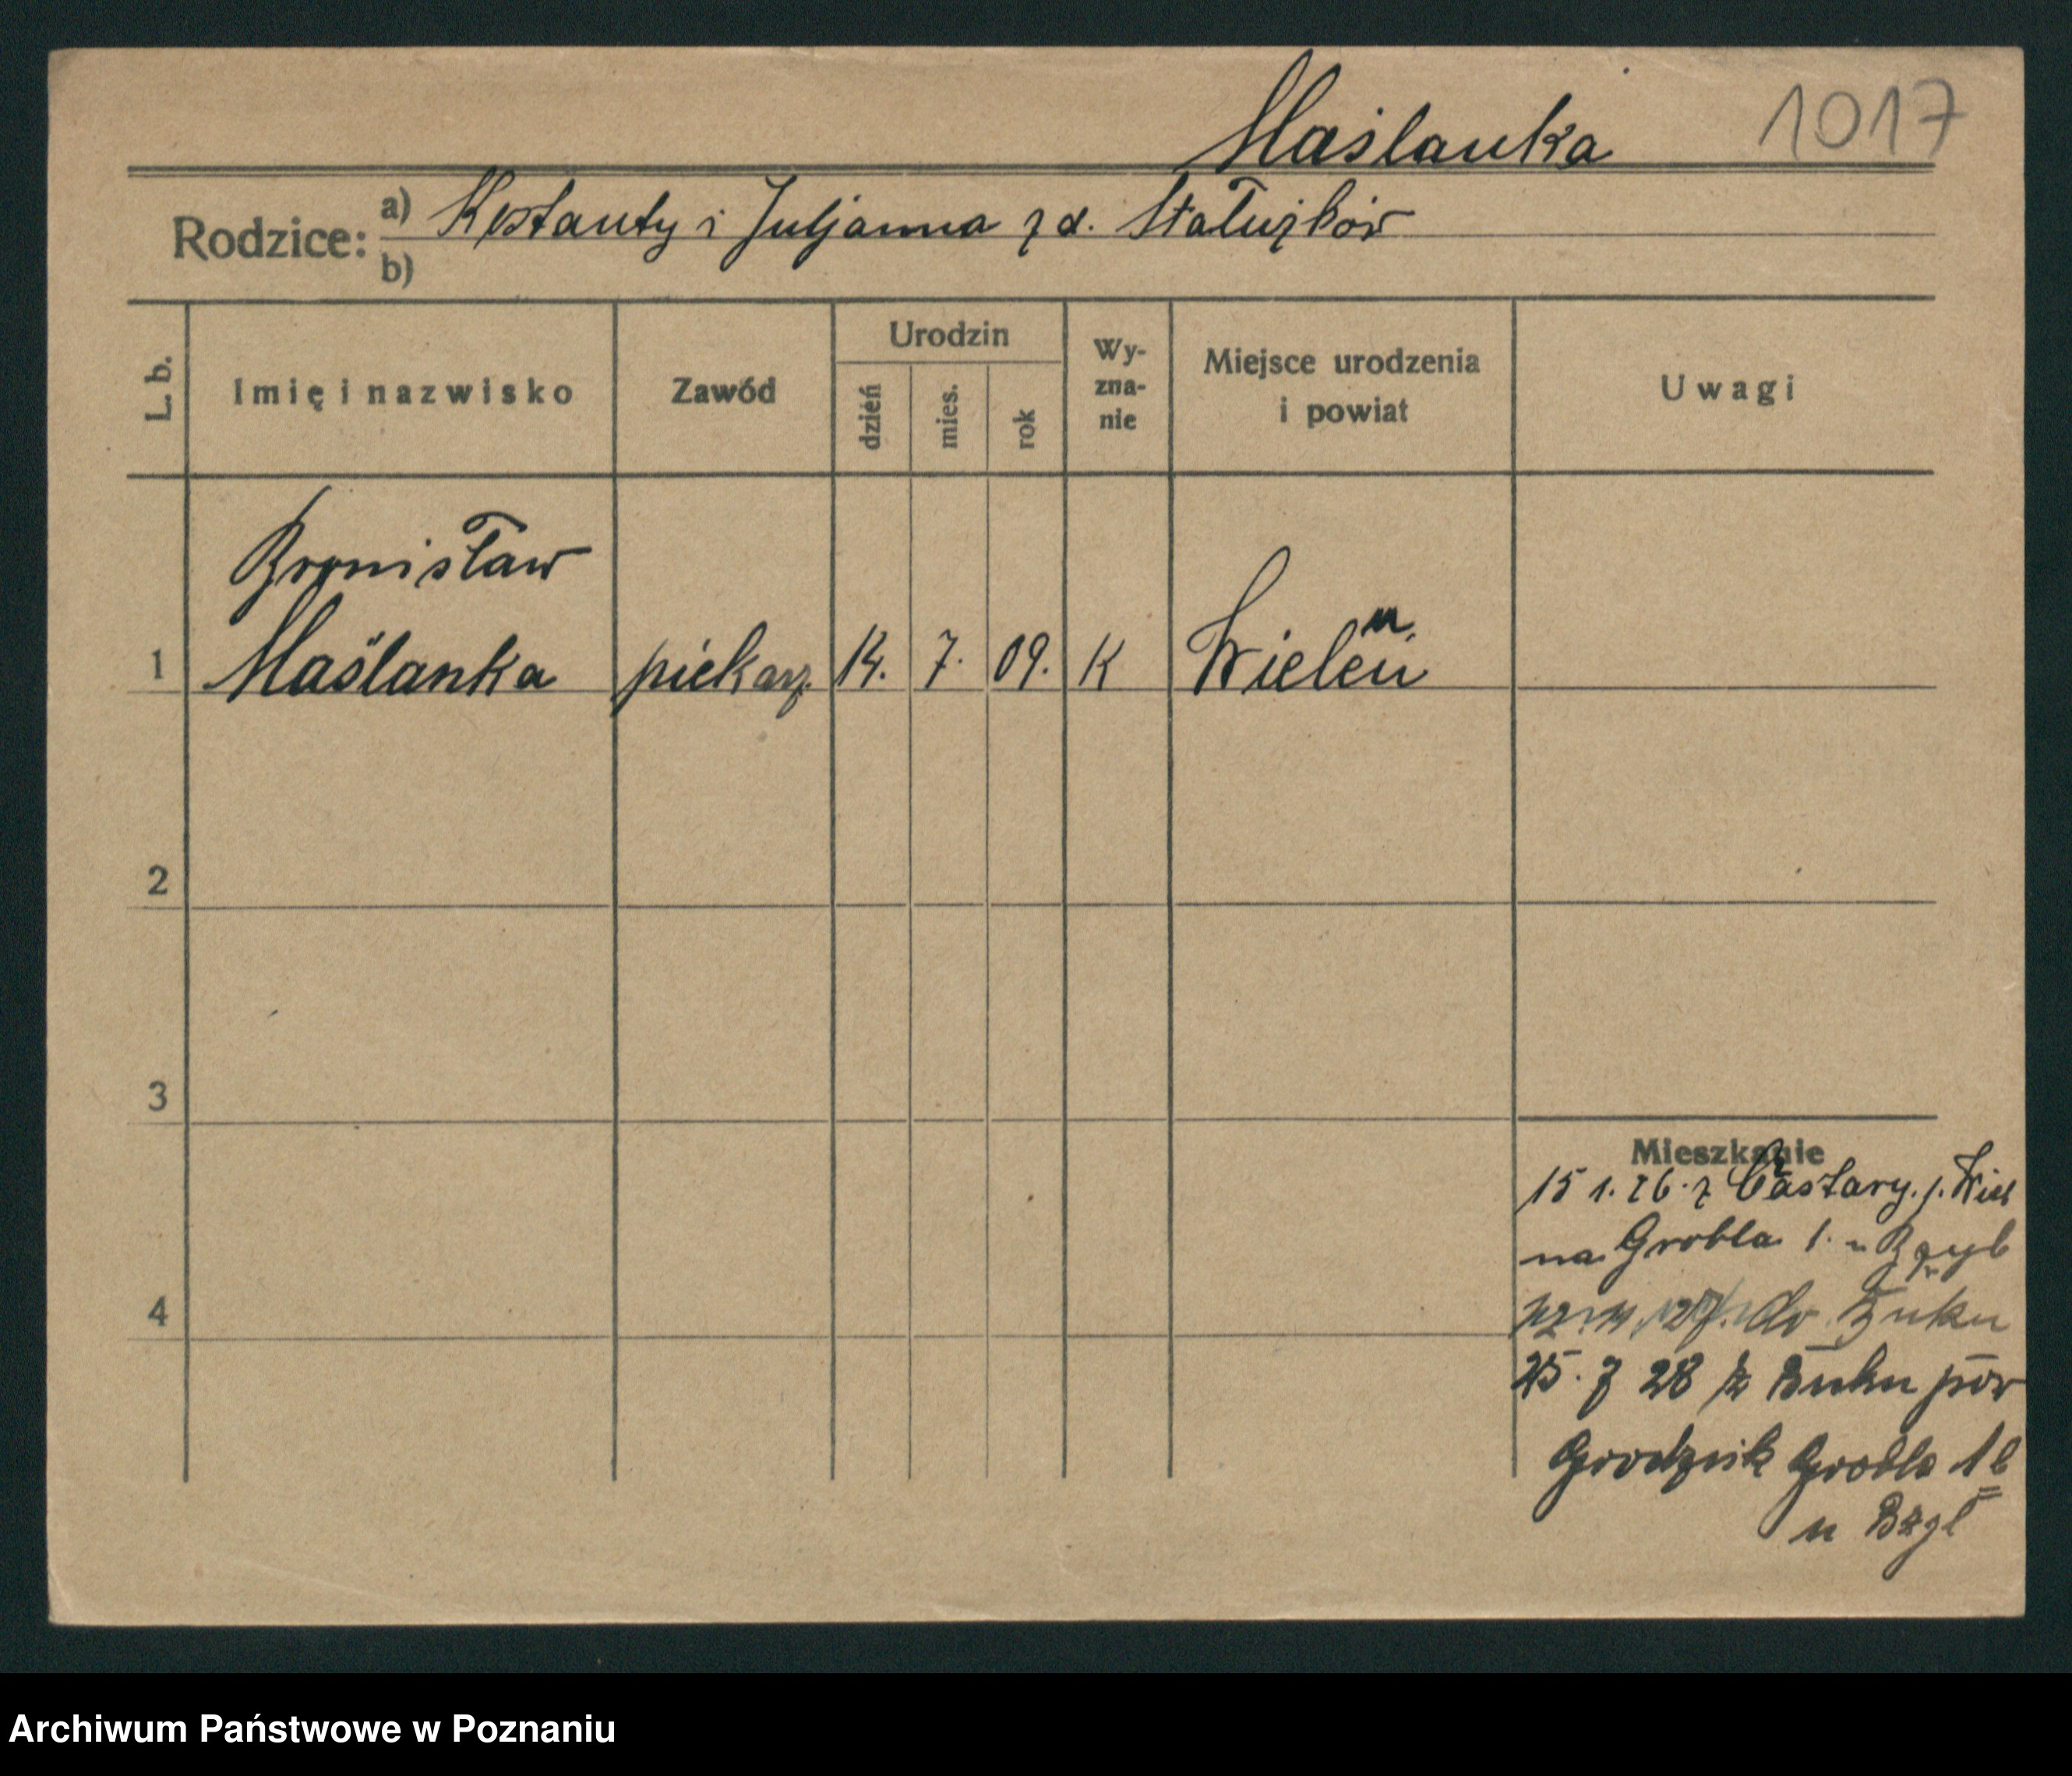 Maślanka 1017
Rodzice: a) Kostanty i Juljanna z d. Stałużków
b)
L. b. Imię i nazwisko Zawód Urodzin dzień mies. rok Wy-zna-nie Miejsce urodzenia i powiat Uwagi
Bronisław
1 Maślanka piekarz. 14. 7. 09. K Wieleń
2
3
Mieszkanie
15 1. 26. z Czastary. p. Wiel
na Grobla 1.
4 do Buku
25. 7 28 z Buku pow
Grodzisk Grobla 16
u
Archiwum Państwowe w Poznaniu